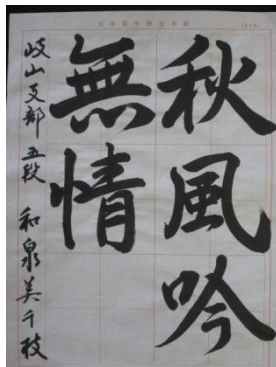 秋風吟
無情
岐山支部 五段 和泉美千枝